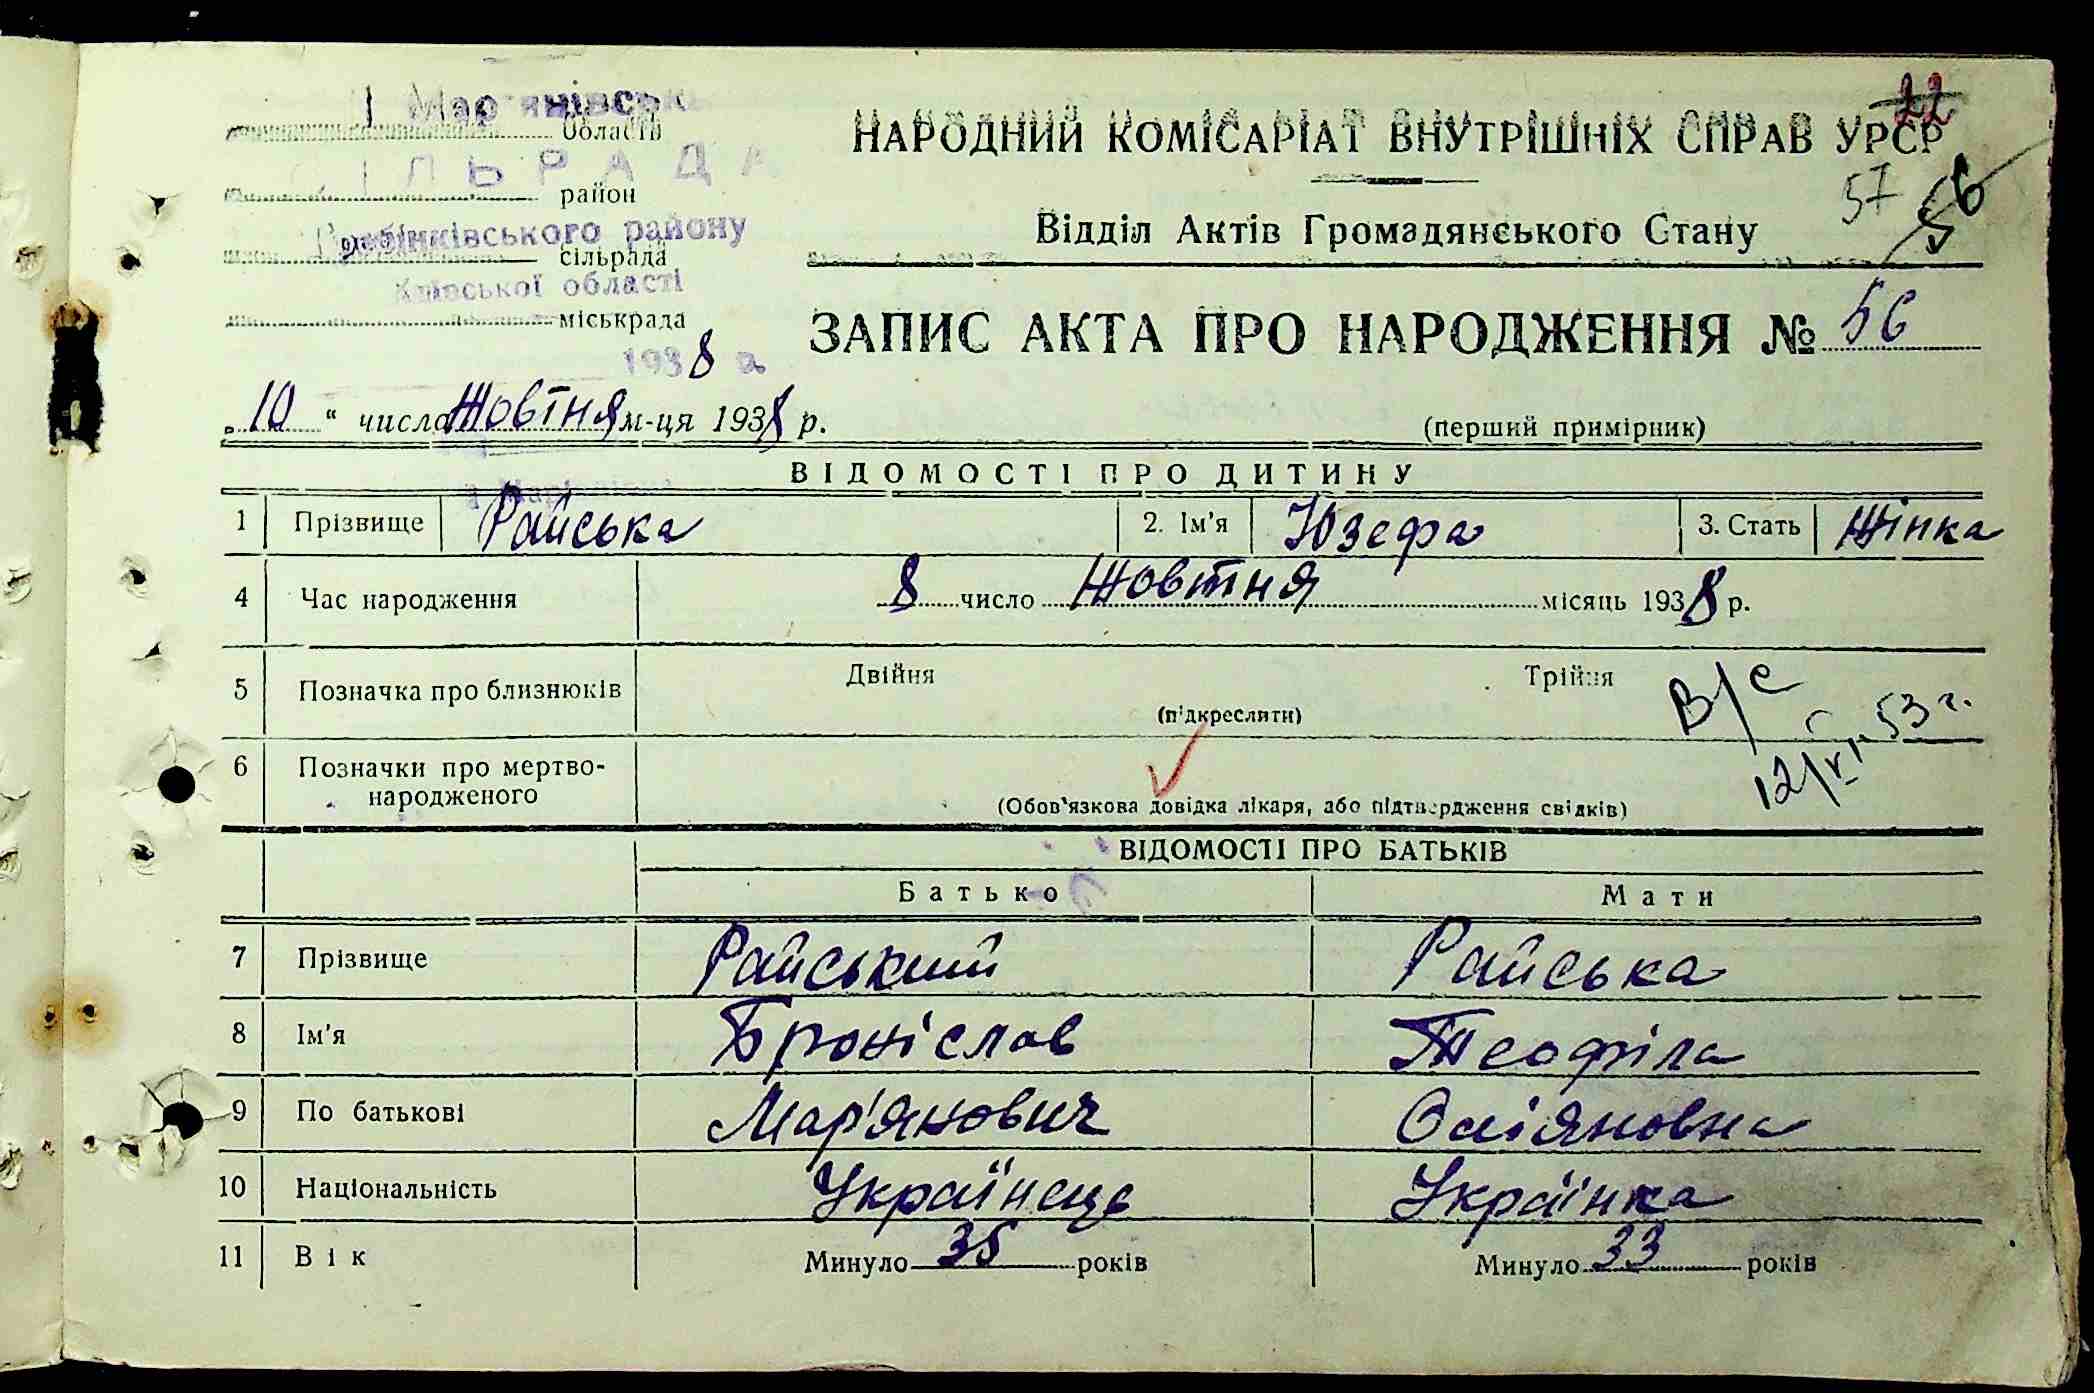 І Мар'янівськ
області
СІЛЬРАДА
район
Гребінківського району
сільрада
Київської області
міськрада
1938 р.
22
НАРОДНИЙ КОМІСАРІАТ ВНУТРІШНІХ СПРАВ УРСР
57 56
Відділ Актів Громадянського Стану
ЗАПИС АКТА ПРО НАРОДЖЕННЯ № 56
„10“ числа Жовтня м-ця 1938 р.
(перший примірник)
ВІДОМОСТІ ПРО ДИТИНУ
1 Прізвище Райська 2. Ім'я Юзефа 3. Стать Жінка
4 Час народження 8 число Жовтня місяць 1938 р.
5 Позначка про близнюків Двійня Трійня
(підкреслити)
В/с
12/VI 53 г.
6 Позначки про мертво-
народженого
(Обов'язкова довідка лікаря, або підтвердження свідків)
ВІДОМОСТІ ПРО БАТЬКІВ
Батько Мати
7 Прізвище Райський Райська
8 Ім'я Броніслав Теофіла
9 По батькові Мар'янович
10 Національність Українець Українка
11 Вік Минуло 35 років Минуло 33 років